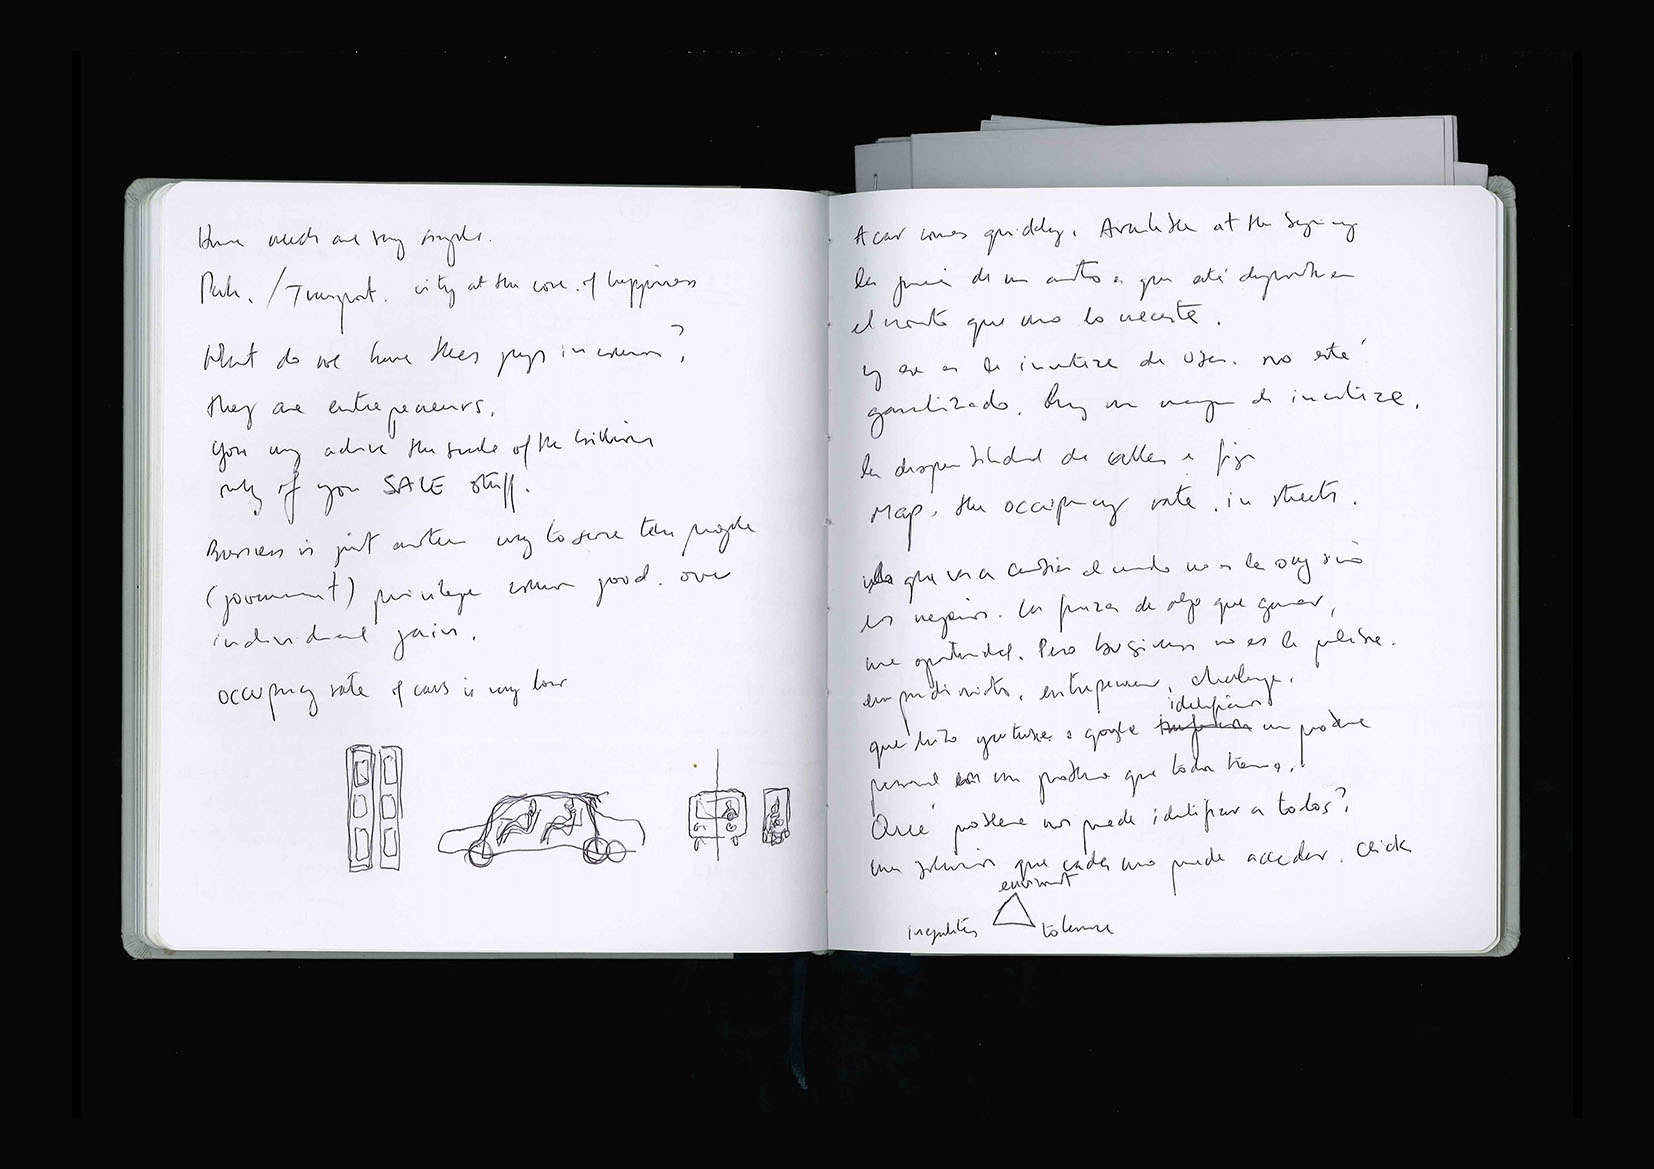 needs are very simple.
Park. / Transport. city at the core of happiness
What do we have these guys in common?
they are entrepreneurs.
you may achieve the scale of the billions
only if you SALE stuff.
Business is just another way to serve people
(government) privilege common good. over
individual gain.
occupancy rate of cars is very low
A car comes quickly. Available at the
la de un auto es que esté disponible en
el momento que uno lo necesite.
y ese es de user. no esté
garantizado. Hay un de
la disponibilidad de calles es fija
Map. the occupancy rate. in streets.
que va a cambiar el mundo no es la sino
los negocios. La fuerza de algo que ganar,
una oportunidad. Pero business no es la palabra.
emprendimiento, entrepreneur, challenge.
identificaron
que hizo youtube o google un problema
personal con un problema que todos tienen.
Qué problema nos puede identificar a todos?
una solución que cada uno puede acceder. Click
environment
inequalities tolerance